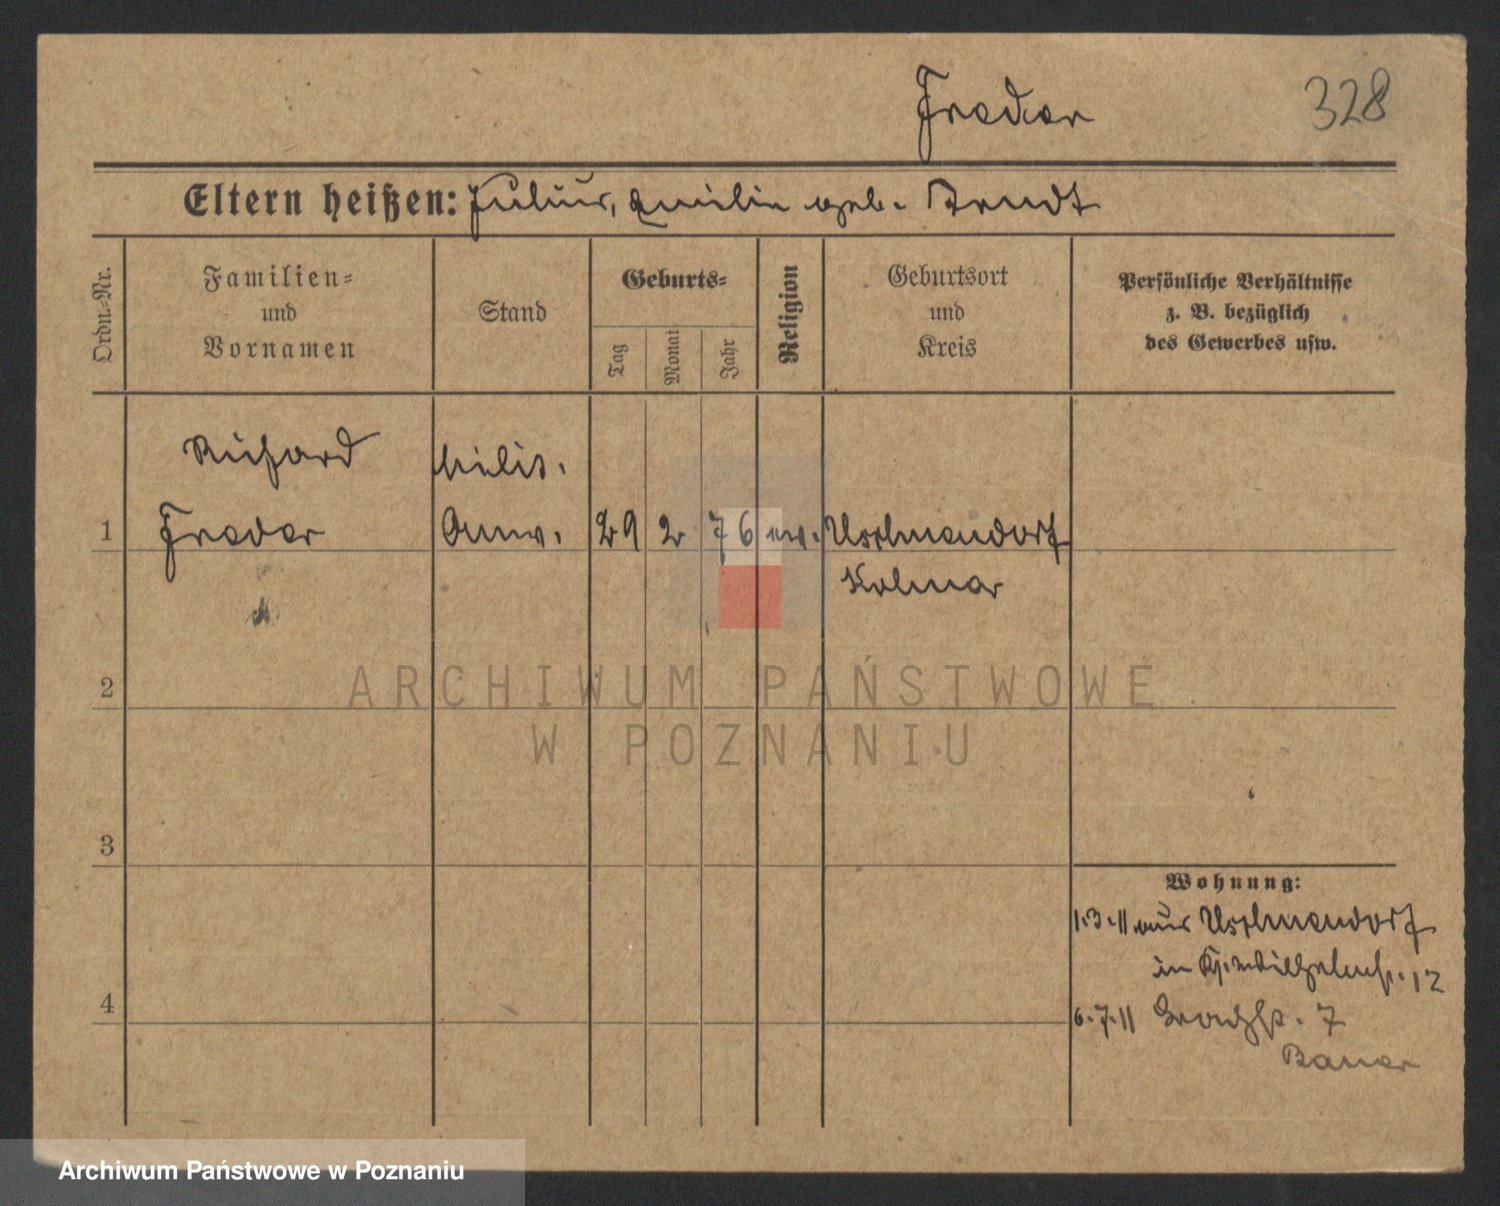 Freder
328
Eltern heißen: Julius, Emilie geb. Arndt
Ordn.-Nr.
Familien-
und
Vornamen
Stand
Geburts-
Tag
Monat
Jahr
Religion
Geburtsort
und
Kreis
Persönliche Verhältnisse
z. B. bezüglich
des Gewerbes usw.
Richard
Milit.
1 Freder Anw. 29 2 76 ev. Usch
Kolmar
2
ARCHIWUM PAŃSTWOWE
W POZNANIU
3
Wohnung:
1.3.11 aus
in 12
4
6.7.11 7
Bauer
Archiwum Państwowe w Poznaniu